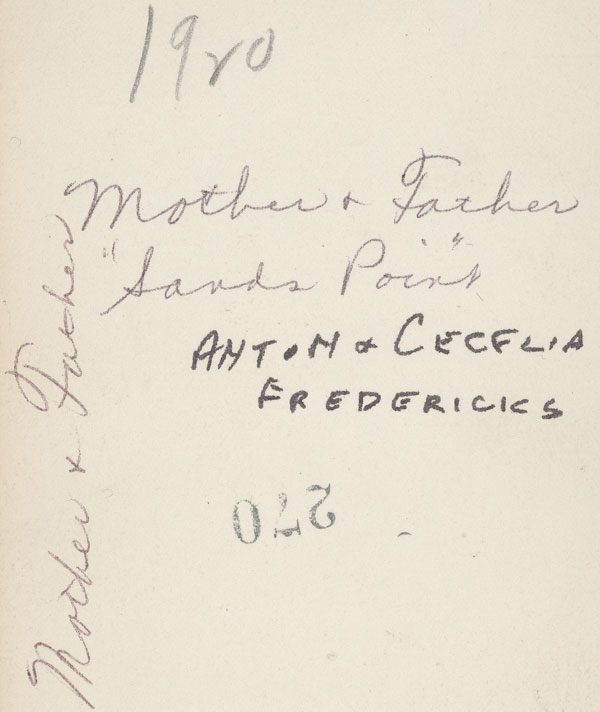 1920
Mother & Father
"Sands Point"
ANTON & CECELIA
FREDERICKS
270
Mother & Father